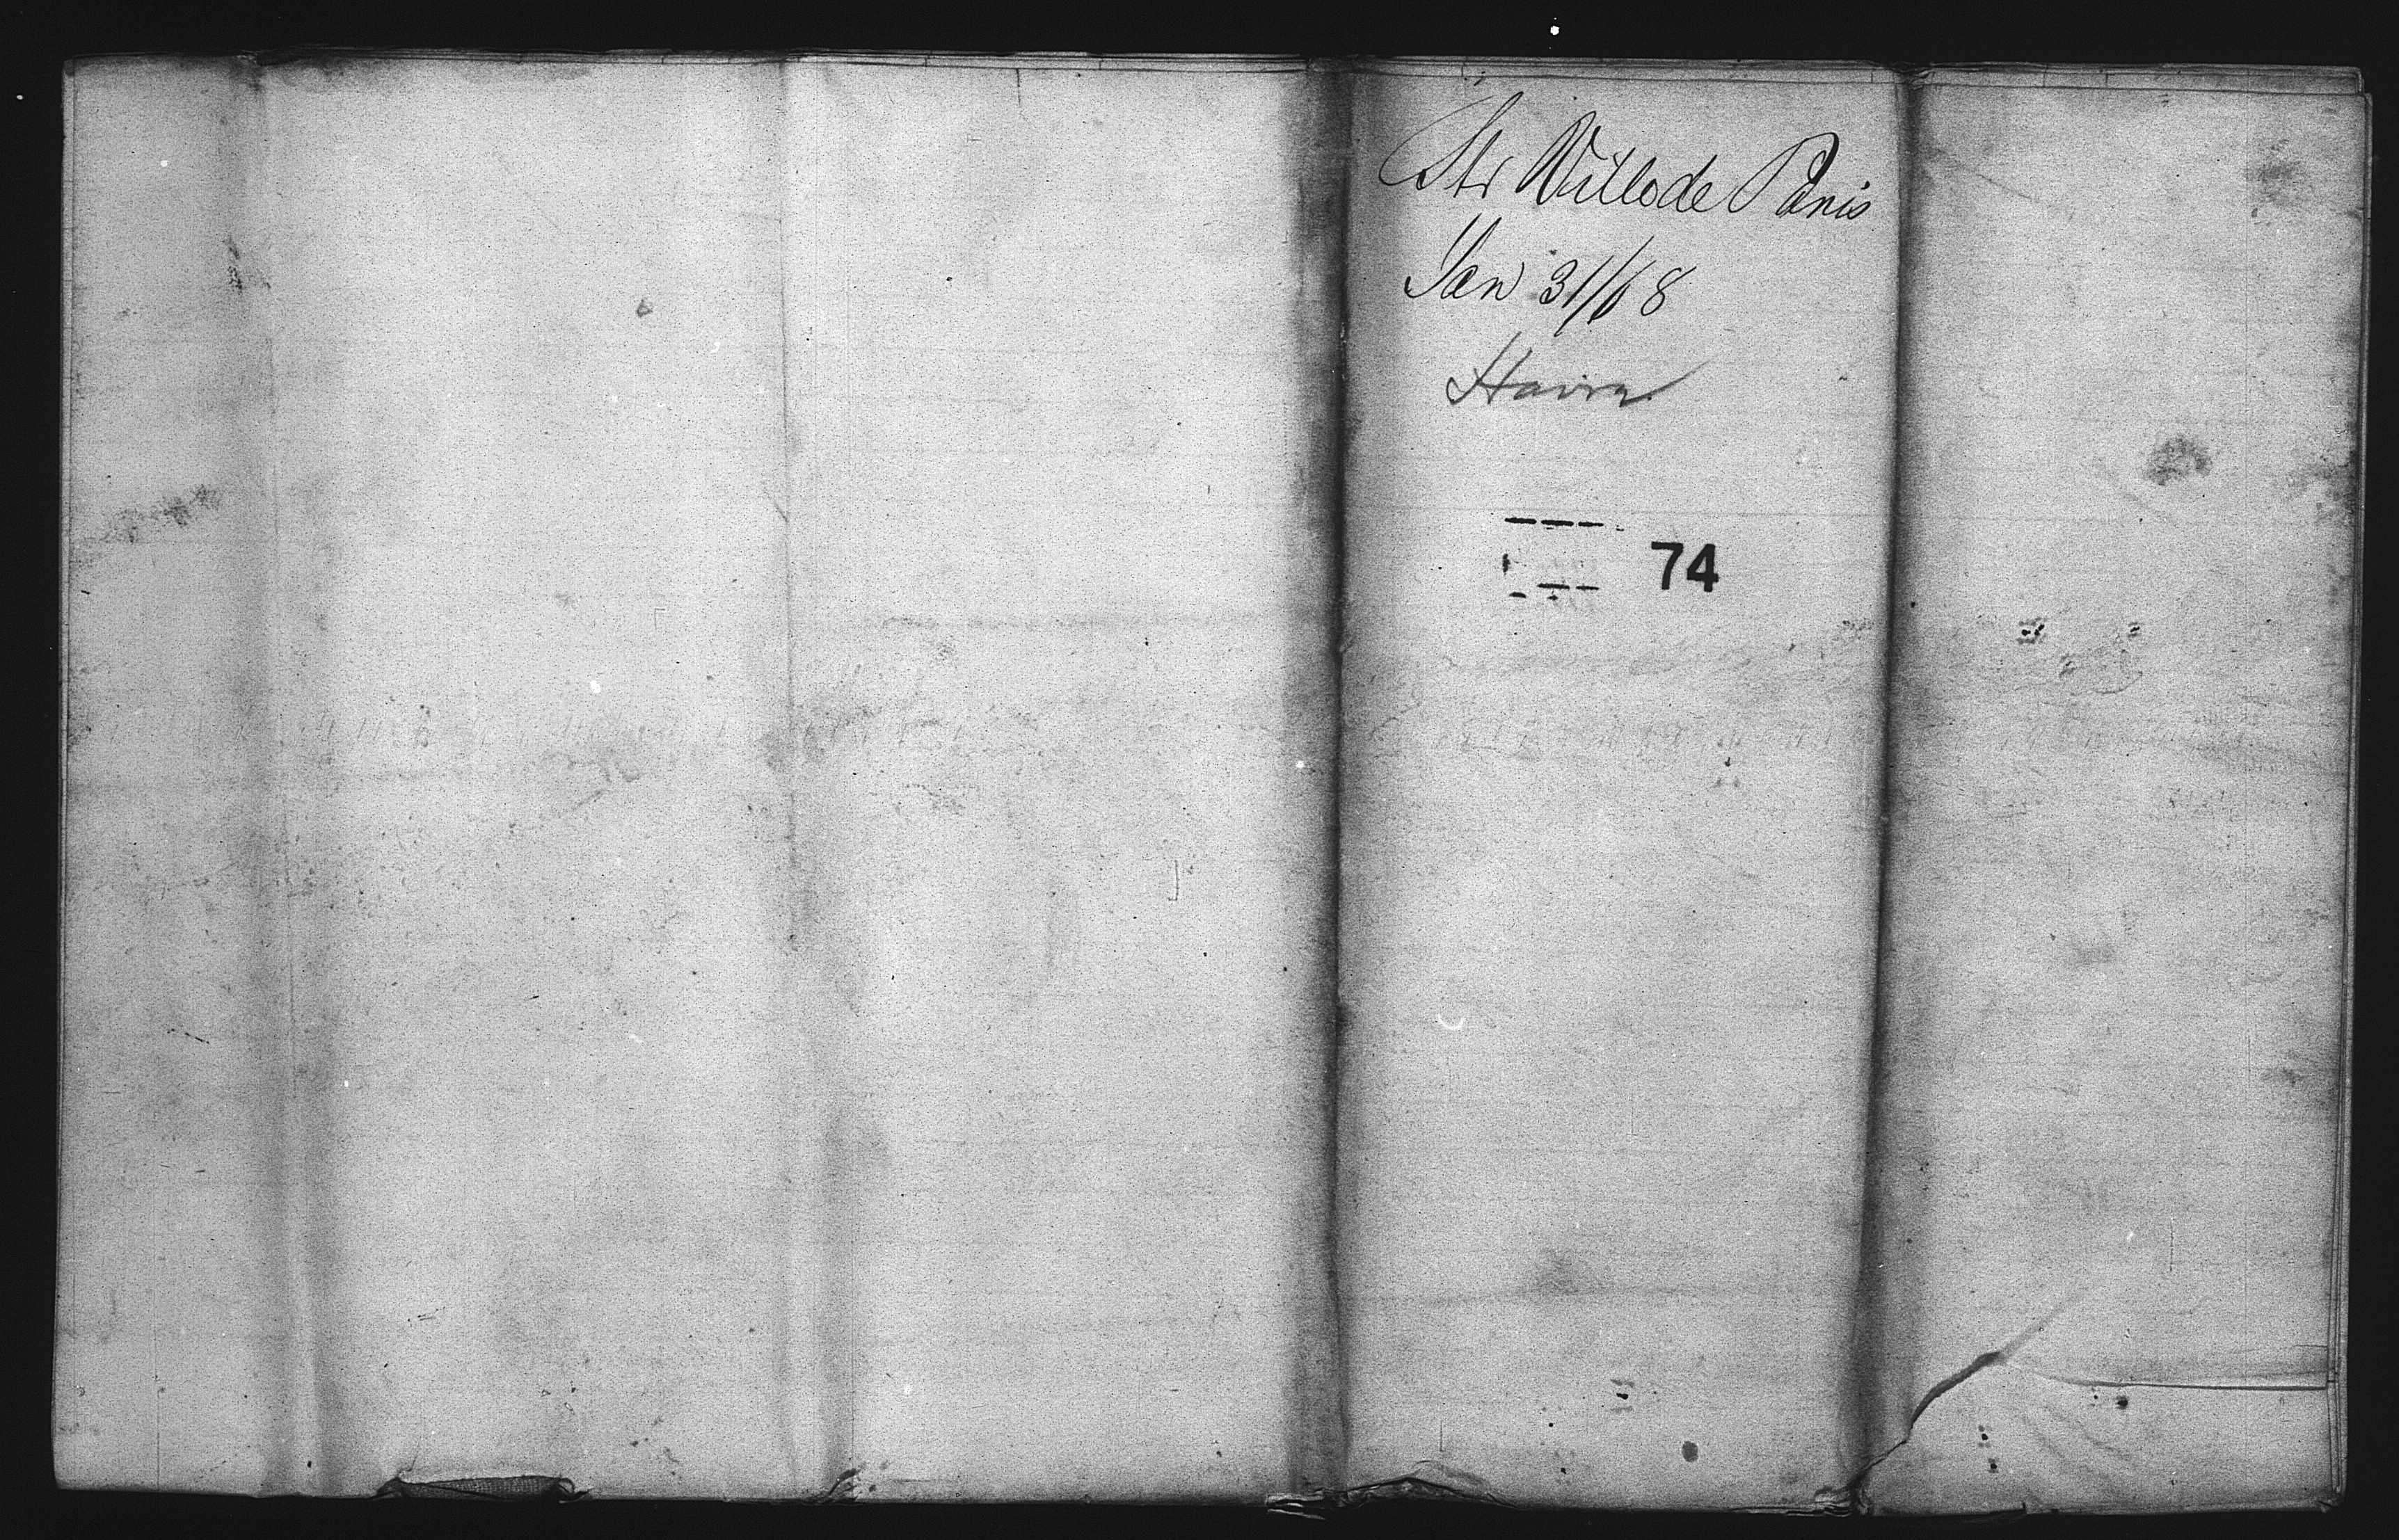 Str Ville de Paris
Jan 31/68
Havre
74